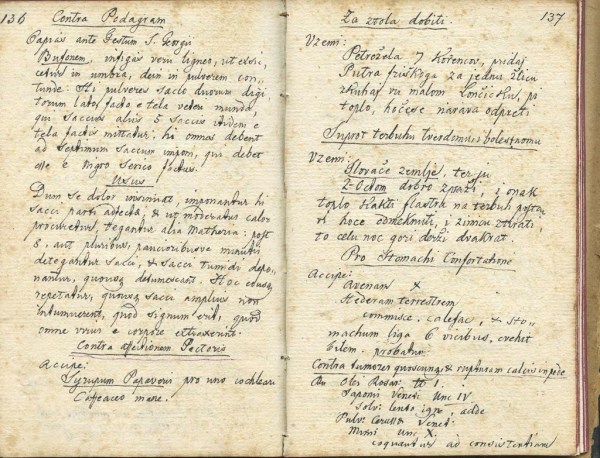 136 Contra Podagram
Capias ante Festum S. Georgii
Bufonem, infigas veru ligneo, ut exsi„
cetur in umbra, dein in pulverem con„
tunde. Hi pulveres sacco duorum digi„
torum lato, facto e tela vetou munda,
qui Saccus aliis 5 Saccis itidem e
tela factis mittatur. hi omnes debent
ad Septimum Saccum imponi, qui debet
esse e nigro Serico factus.
Usus
Dum se dolor insinuat, imponantur hi
Sacci parti adfectae, & ut moderatus calor
procuretur, tegantur alia Matheria: post
8, aut pluribus, paucioribusve minutis
detegantur Sacci, & Sacci tumidi depo„
nantur, quousq detumescant. Hoc eousq
repetatur, quousq sacci amplius non
intumuerint, quod signum erit, quod
omne virus e corpore extraxerint.
Contra affectionem Pectoris
Accipe:
Syrupum Papaveris pro uno cochleari
Caffeaceo mane.
137
Za zvola dobiti.
Vzemi:
Petrožela 7 Korenov, pridaj
Putra friskoga za jednu žlicu
zkuhaj vu malom Lončičku, pi
toplo, hoćese narava odpreti
Suprot terbuhu tverdomu, i bolesznomu
Vzemi:
Slovače zemlje, ter ju
Z-Octom dobro zprži, i onak
toplo kakti flastrk na terbuh postavi
hoce odmeknuti, i zimicu ztirati,
to celu noc gori derži dvakrat.
Pro Stomachi Confortatione
Accipe:
Avenam &
Hederam terrestrem
commisce, calefac, & sto„
machum liga 6 vicibus, evehit
bilem. probatum
Contra tumores quoscunq & rupturam calcis in pede
Rp Olei Rosar. tt 1.
Saponis Venet: Unc IV
Solv: lento igne, adde
Pulv: Cerussae Venet:
Minii Unc X.
coquantur ad consistentiam